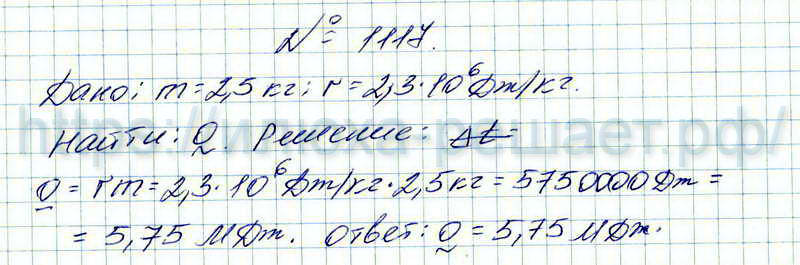 № 1117.
Дано: m = 2,5 кг; r = 2,3·10⁶ Дж/кг.
Найти: Q. Решение: Δt =
Q = rm = 2,3·10⁶ Дж/кг · 2,5 кг = 5750000 Дж =
= 5,75 МДж. Ответ: Q = 5,75 МДж.